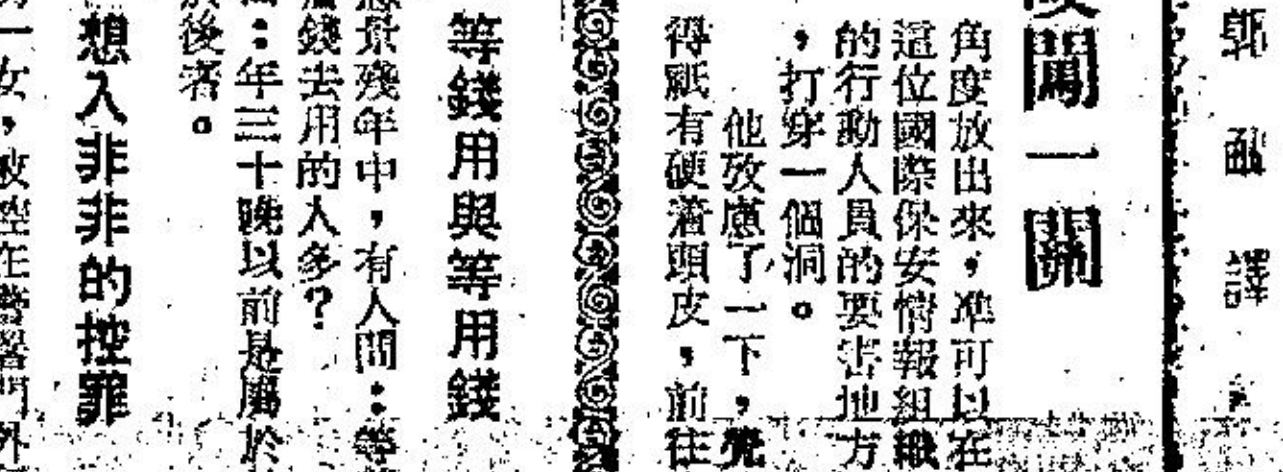 郭
譯
闖一關
角度放出來，准可以在
這位國際保安情報組織
的行動人員的要害地方
，打穿一個洞。
他攷慮了一下，覺
得祇有硬着頭皮，前往
等錢用與等用錢
殘年中，有人問：等
錢去用的人多？
：年三十晚以前是屬於
後者。
想入非非的控罪
一女，被控在警署門外